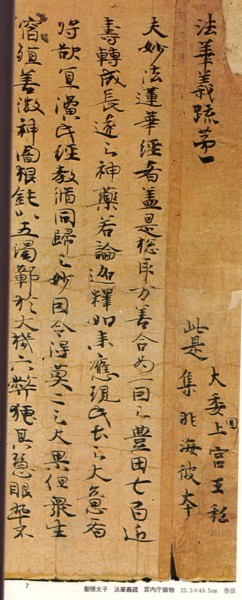 法華義疏第一
此是
大委国上宮王私
集非海彼本
夫妙法蓮華經者盖是惣取万善合為一因之豊田七百近
壽轉成長遠之神藥若論迦釋如来應現此土之大意者
将欲宜演此經教脩同歸之妙因令得莫二之大果但衆生
宿殖善微神闇根鈍以五濁鄣於大機六弊掩其慧眼卒不
7 聖徳太子 法華義疏 宮内庁御物 25.5×49.5cm 巻頭